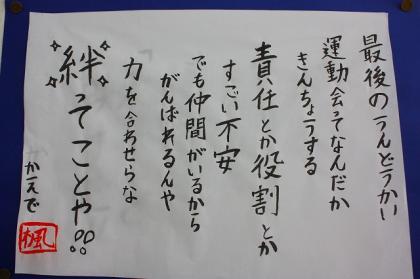 最後のうんどうかい
運動会ってなんだか
きんちょうする
責任とか役割とか
すごい不安
でも仲間がいるから
がんばれるんや
力を合わせらな
絆ってことや!!
かえで
楓